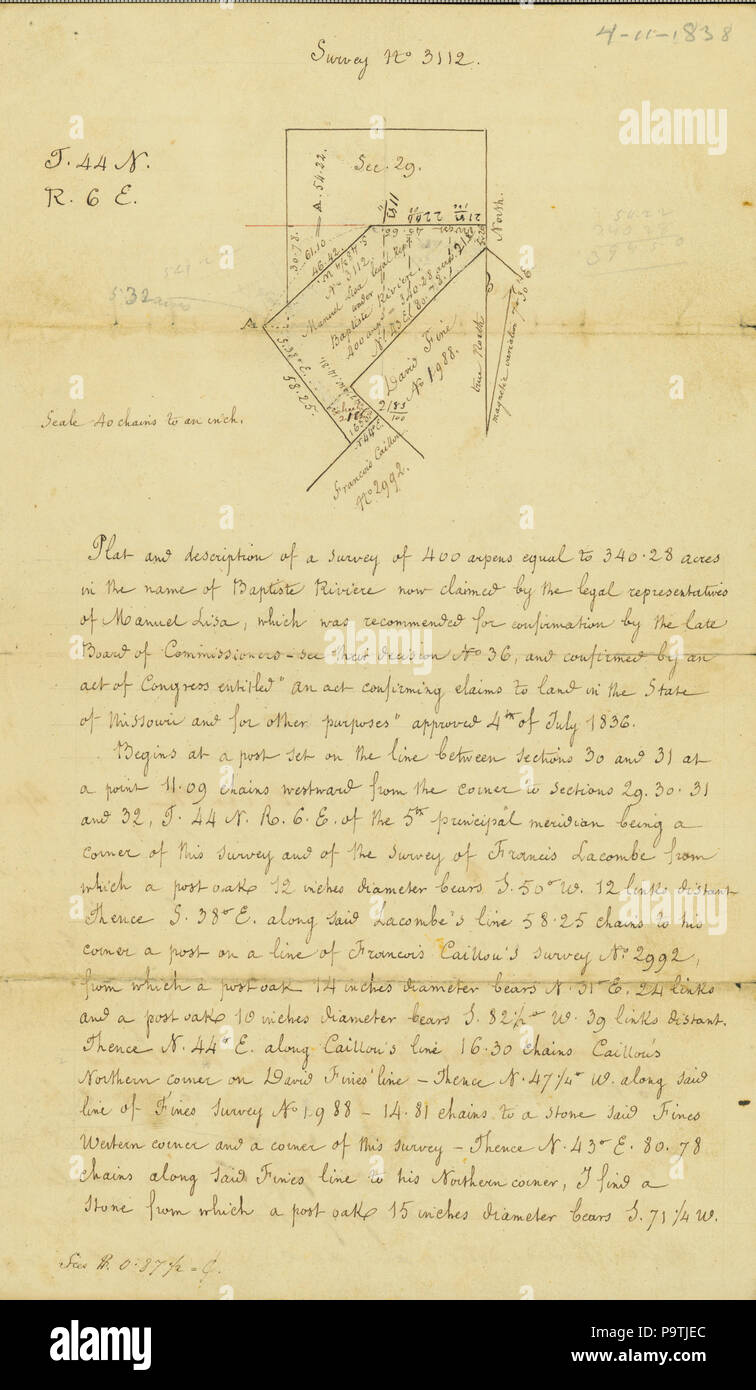 4-11-1838
Survey No 3112.
T. 44 N.
R. 6 E.
Sec. 29.
A. 54.22.
30.78.
61.10
46.42.
North.
No 3112.
Manuel Lisa legal Rep
under
Baptiste Riviere.
400 arps = 340.28 acres
N. 43 E. 80.78.
S. 38° E.
58.25.
David Fine
No 1988.
true North
magnetic variation
N 44 E.
Francois Caillou
No 2992.
Scale 40 chains to an inch.
Plat and description of a survey of 400 arpens equal to 340.28 acres
in the name of Baptiste Riviere now claimed by the legal representatives
of Manuel Lisa, which was recommended for confirmation by the late
Board of Commissioners - see their decision No 36, and confirmed by an
act of Congress entitled "an act confirming claims to land in the State
of Missouri and for other purposes" approved 4th of July 1836.
Begins at a post set on the line between sections 30 and 31 at
a point 11.09 chains westward from the corner to sections 29. 30. 31
and 32, T. 44 N. R. 6. E. of the 5th principal meridian being a
corner of this survey and of the survey of Francis Lacombe from
which a post oak 12 inches diameter bears S. 50° W. 12 links distant
Thence S. 38° E. along said Lacombe's line 58.25 chains to his
corner a post on a line of Francois Caillou's survey No. 2992,
from which a post oak 14 inches diameter bears N. 31° E. 24 links
and a post oak 10 inches diameter bears S. 82 1/2° W. 39 links distant.
Thence N. 44° E. along Caillou's line 16.30 chains Caillou's
Northern corner on David Fines' line - Thence N. 47 1/4° W. along said
line of Fines survey No 1988 - 14.81 chains to a stone said Fines
Western corner and a corner of this survey - Thence N. 43° E. 80.78
chains along said Fines line to his Northern corner, I find a
stone from which a post oak 15 inches diameter bears S. 71 1/4 W.
alamy
alamy
alamy
Image ID: P9TJEC
www.alamy.com